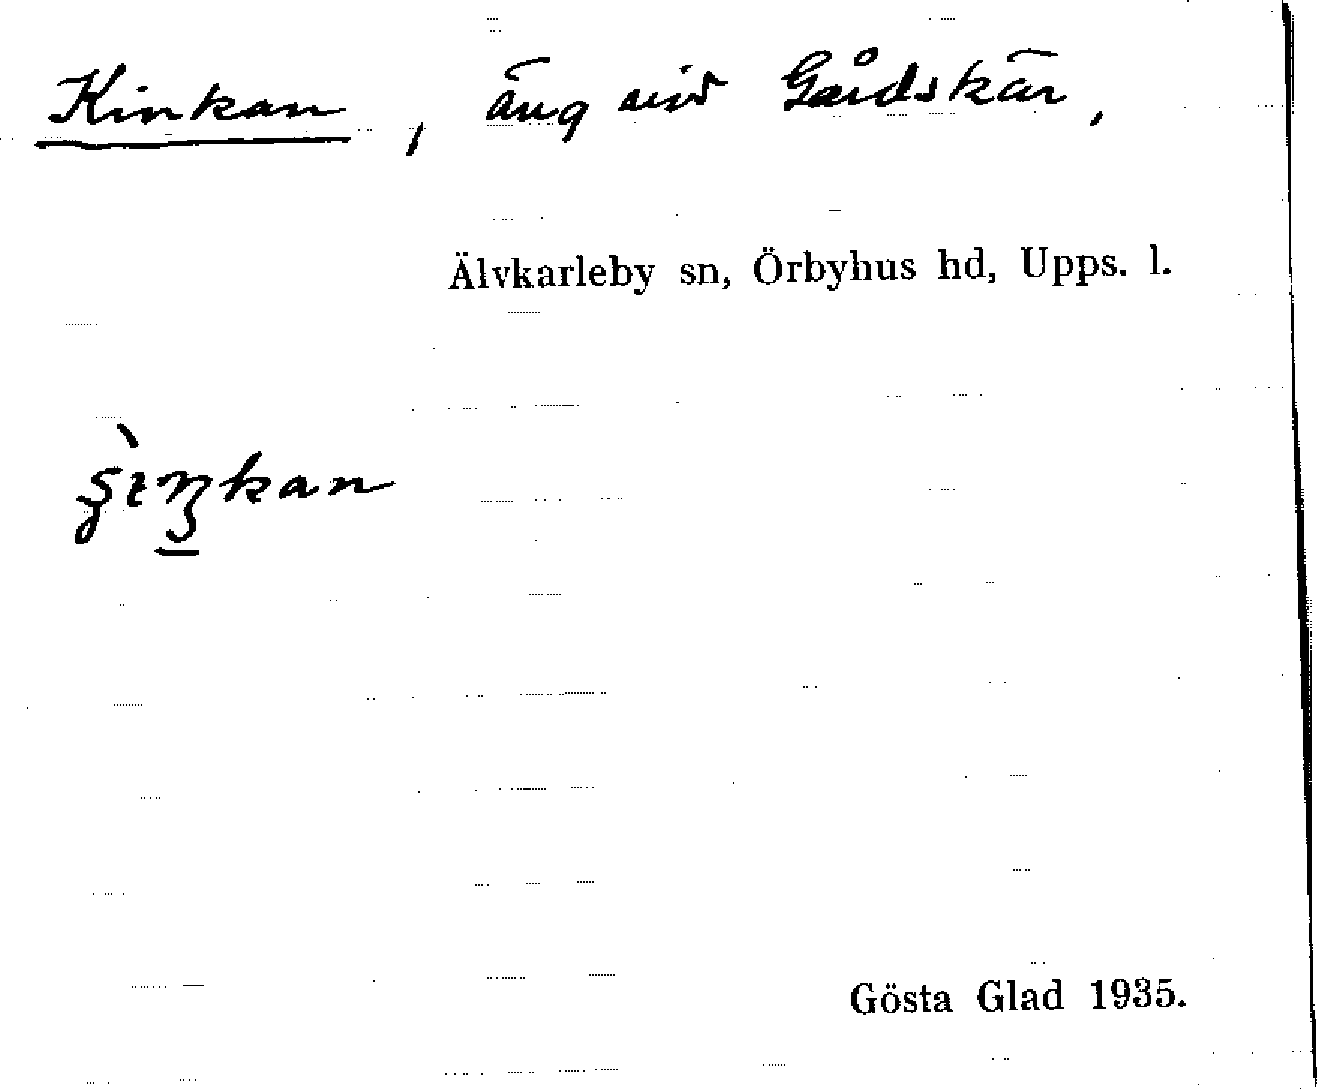 Kinkan, äng vid Gårdskär,
Älvkarleby sn, Örbyhus hd, Upps. l.
Gösta Glad 1935.